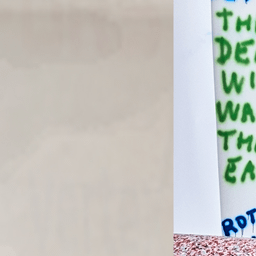 TH
DE
WI
WA
TH
EA
RDT